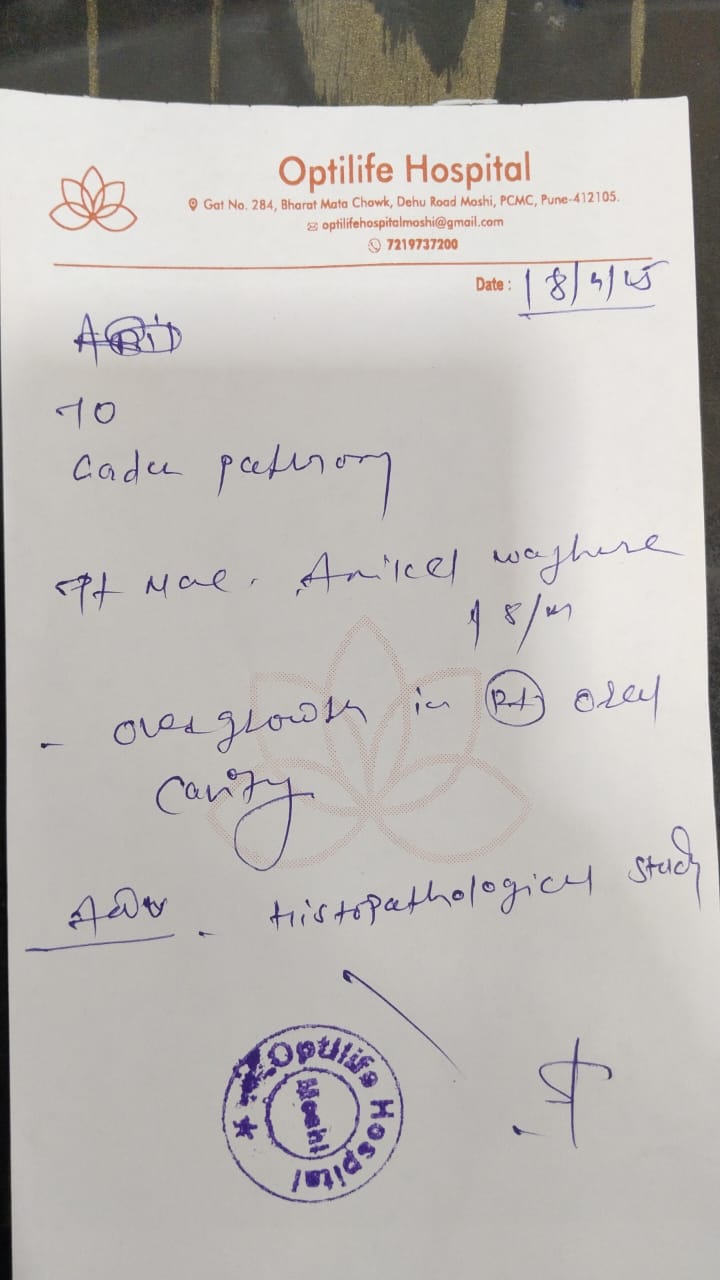 Optilife Hospital
Gat No. 284, Bharat Mata Chowk, Dehu Road Moshi, PCMC, Pune-412105.
optilifehospitalmoshi@gmail.com
7219737200
Date : 18/4/25
To
pathology
Pt Aniket waghere
18/m
- overgrowth in Rt oral
cavity
Adv - Histopathological study
Optilife Hospital
Moshi